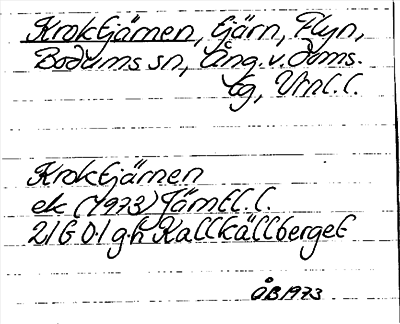 Kroktjärnen, tjärn, Flyn,
Bodums sn, Ång. v. doms.
tg, Vtnl. l.
Kroktjärnen
ek (1973) Jämtl. l.
21G 0-1 g-h Kallkällberget
ÅB 1973